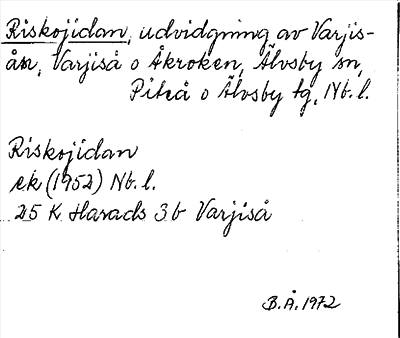 Riskojidan, udvidgning av Varjis-
ån, Varjiså o Åkroken, Älvsby sn,
Piteå o Älvsby tg, Nb. l.
Riskojidan
ek (1952) Nb. l.
25 K Harads 3b Varjiså
B.Å. 1972